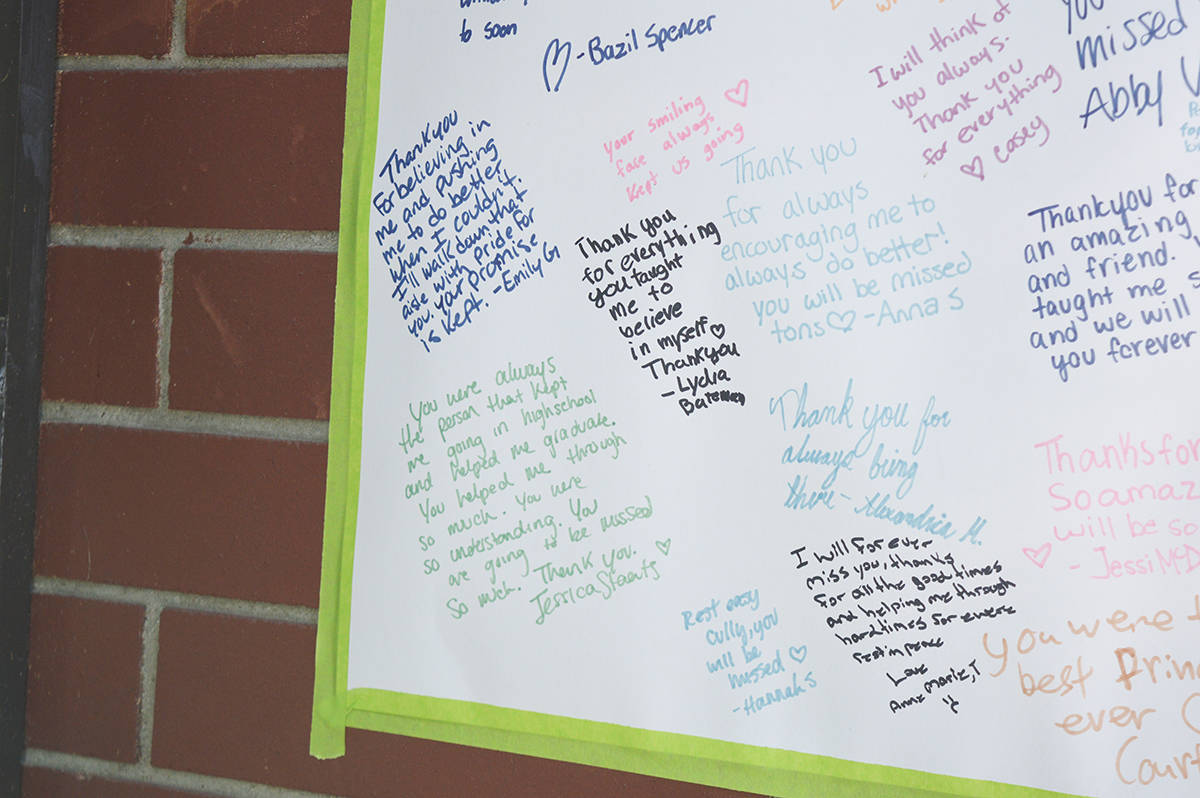 to soon
- Bazil Spencer
Thank you
for believing in
me and pushing
me to do better
when I couldn't.
I'll walk down that
aisle with pride for
you. your promise
is kept. - Emily G
your smiling
face always
kept us going
I will think of
you always.
Thank you
for everything
casey
missed
Abby
Thank you
for everything
you taught
me to
believe
in myself
Thank you
- Lydia
Bateman
Thank you
for always
encouraging me to
always do better!
you will be missed
tons - Anna S
Thank you for
an amazing
and friend.
taught me
and we will
you forever
You were always
the person that kept
me going in highschool
and helped me graduate.
You helped me through
so much. You were
so understanding. You
are going to be missed
so much. Thank you.
Jessica
Thank you for
always being
there - Alexandria M.
Thanks for
So amaz
will be so
- Jessi McD
I will for ever
miss you, thanks
for all the good times
and helping me through
hard times for evere
rest in peace
Love
Anna Marie, T
Rest easy
Cully, you
will be
missed
- Hannah S
You were t
best Princ
ever
Court